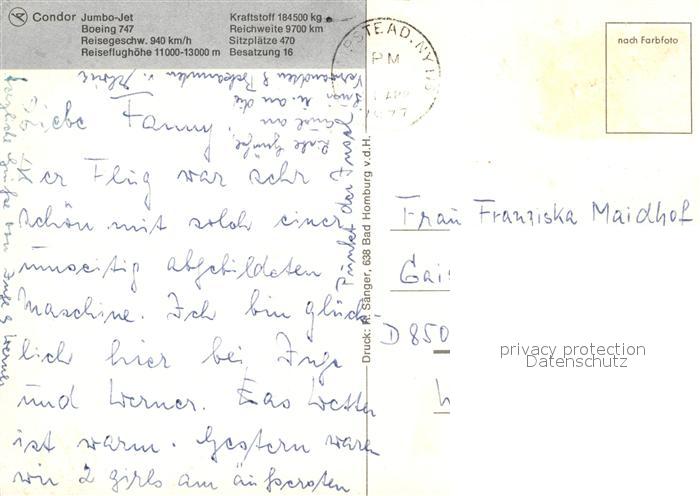 Condor Jumbo-Jet
Boeing 747
Reisegeschw. 940 km/h
Reiseflughöhe 11000-13000 m
Kraftstoff 184500 kg
Reichweite 9700 km
Sitzplätze 470
Besatzung 16
PSTEAD, NY
PM
nach Farbfoto
Liebe Fanny,
Der Flug war sehr
schön mit solch einer
umseitig abgebildeten
Maschine. Ich bin glück-
lich hier bei Inge
und Werner. Das Wetter
ist warm. Gestern waren
wir 2 girls am äußersten
Punkt der Insel
Liebe Grüße
an die
Verwandten & Bekannten
Herzliche Grüße von Inge & Werner
Druck: R. Sänger, 638 Bad Homburg v.d.H.
Frau Franziska Maidhof
Gai
D 850
privacy protection
Datenschutz